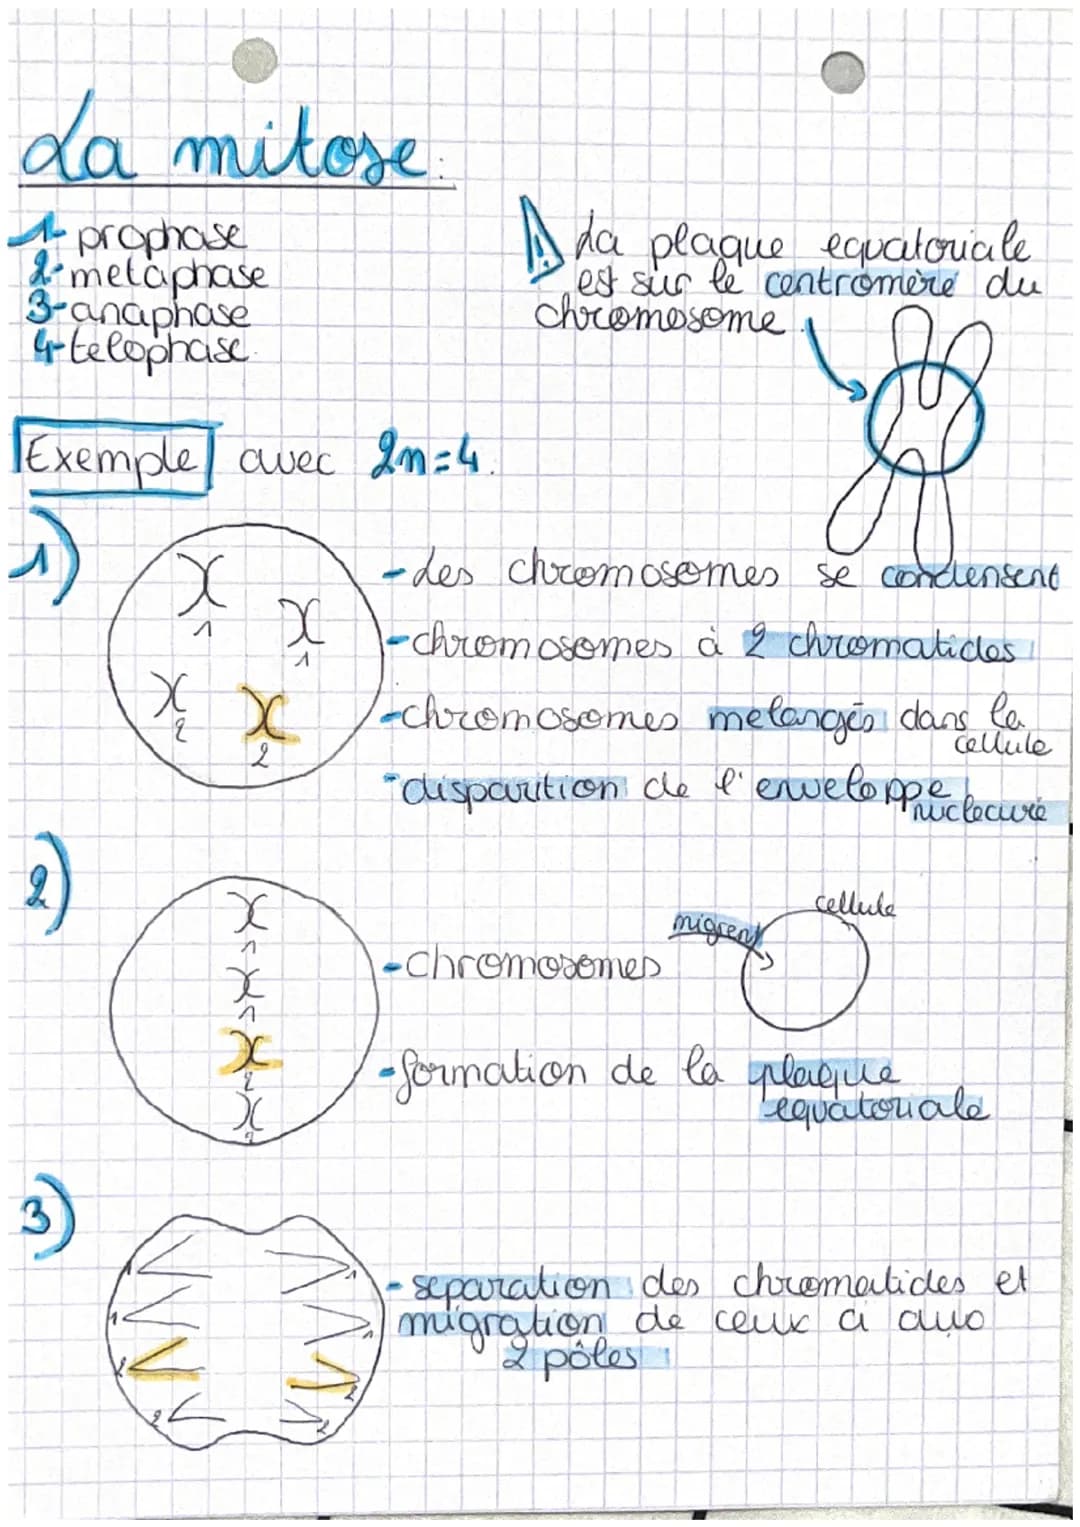 La mitose:
1- prophase
2- metaphase
3- anaphase
4- telophase.
⚠ La plaque equatoriale
est sur le centromère du
chromosome.
Exemple avec 2n=4.
1)
1
1
2
2
- Les chromosomes se condensent
- chromosomes à 2 chromatides
- chromosomes melangés dans la
cellule
- disparition de l'enveloppe
nucleaire
2)
1
1
2
2
- chromosomes
migrent
cellule
- formation de la plaque
equatoriale
3)
1
1
1
1
2
2
2
2
- separation des chromatides et
migration de ceux ci aux
2 pôles